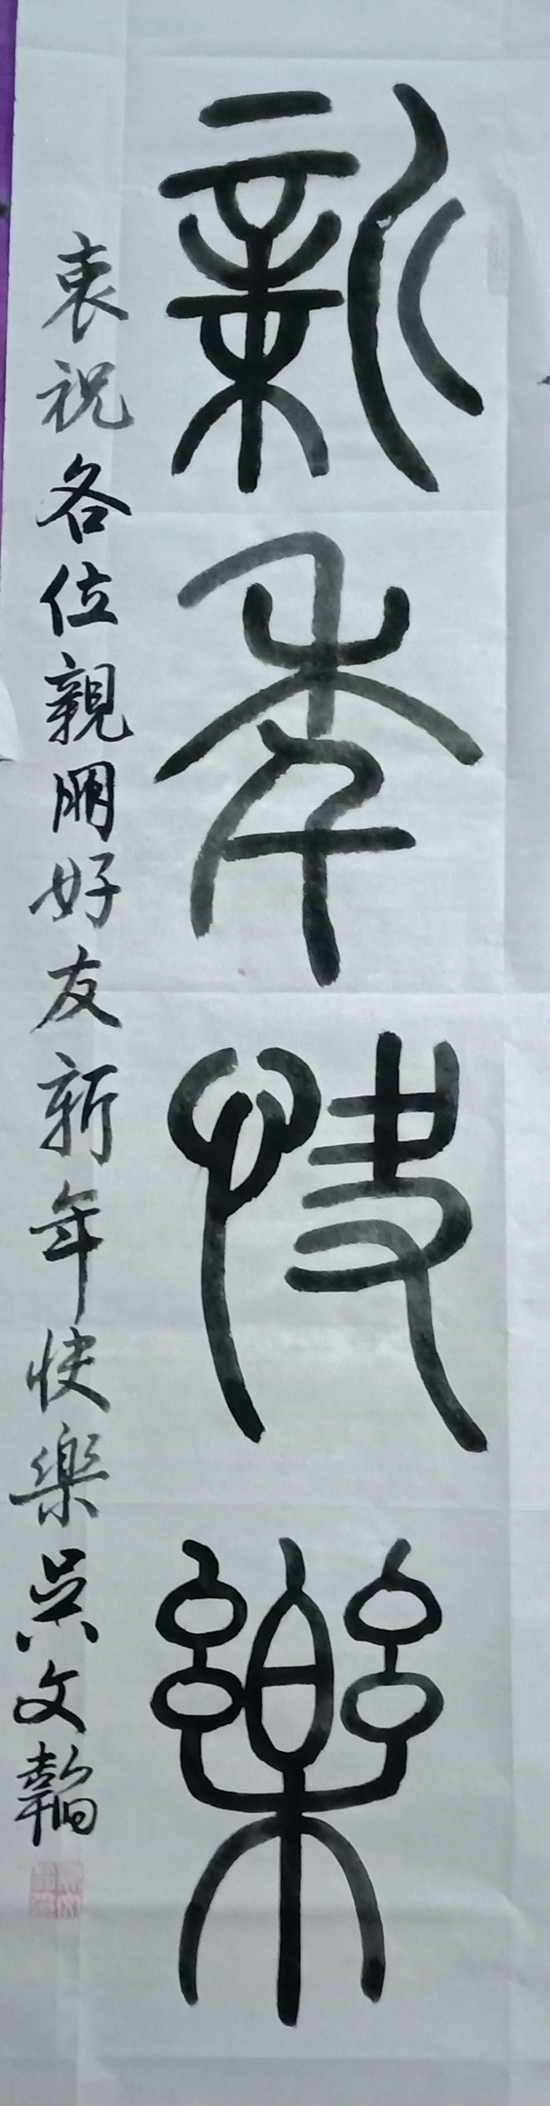 新年快樂
衷祝各位親朋好友新年快樂吴文韜